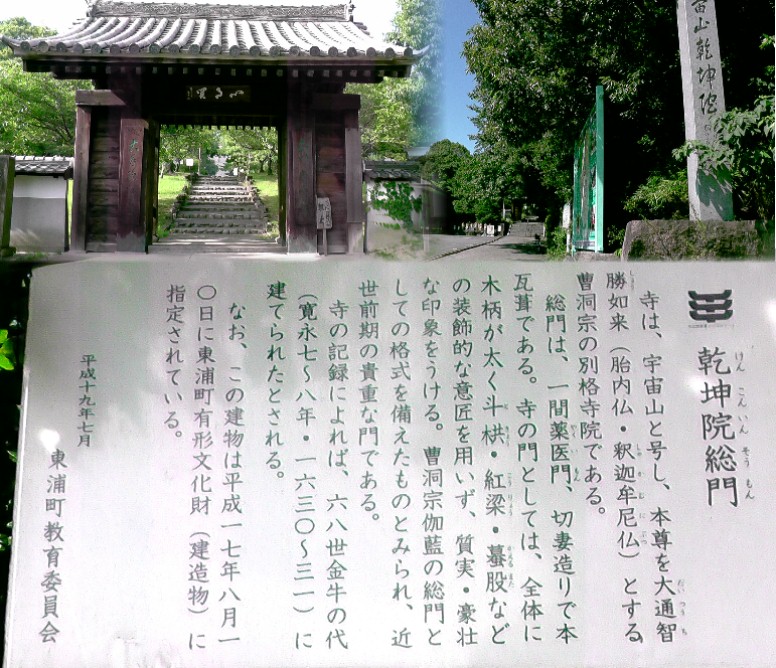 宙山乾坤院
乾坤院総門
けんこんいんそうもん
寺は、宇宙山と号し、本尊を大通智
だいつうち
勝如来（胎内仏・釈迦牟尼仏）とする
しょう
しゃかむにぶつ
曹洞宗の別格寺院である。
総門は、一間薬医門、切妻造りで本
瓦葺である。寺の門としては、全体に
木柄が太く斗栱・紅梁・蟇股など
こうりょう
かえるまた
の装飾的な意匠を用いず、質実・豪壮
な印象をうける。曹洞宗伽藍の総門と
しての格式を備えたものとみられ、近
世前期の貴重な門である。
寺の記録によれば、六八世金牛の代
（寛永七～八年・一六三〇～三一）に
建てられたとされる。
なお、この建物は平成一七年八月一
〇日に東浦町有形文化財（建造物）に
指定されている。
平成十九年七月
東浦町教育委員会